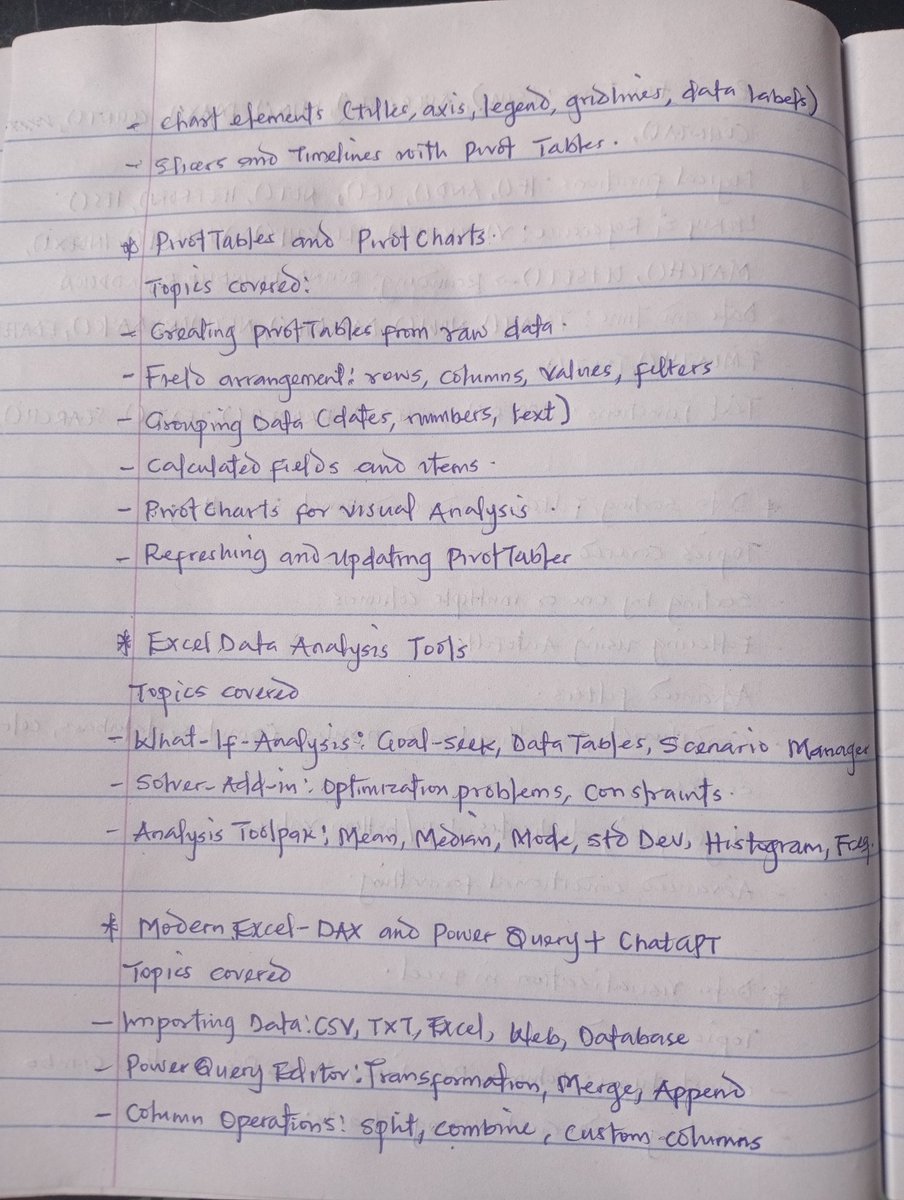 - Chart elements (titles, axis, legend, gridlines, data labels)
- Slicers and Timelines with Pivot Tables.
* PivotTables and PivotCharts.
Topics covered:
- Creating pivotTables from raw data.
- Field arrangement: rows, columns, values, filters
- Grouping Data (dates, numbers, text)
- Calculated fields and items.
- PivotCharts for visual Analysis.
- Refreshing and updating PivotTables
* Excel Data Analysis Tools
Topics covered
- What-If-Analysis: Goal-Seek, Data Tables, Scenario Manager
- Solver-Add-in: Optimization problems, constraints.
- Analysis Toolpak: Mean, Median, Mode, std Dev, Histogram,
* Modern Excel-DAX and Power Query + ChatGPT
Topics covered
- Importing Data: CSV, TXT, Excel, Web, Database
- Power Query Editor: Transformation, Merge, Append
- Column Operations: split, combine, custom-columns